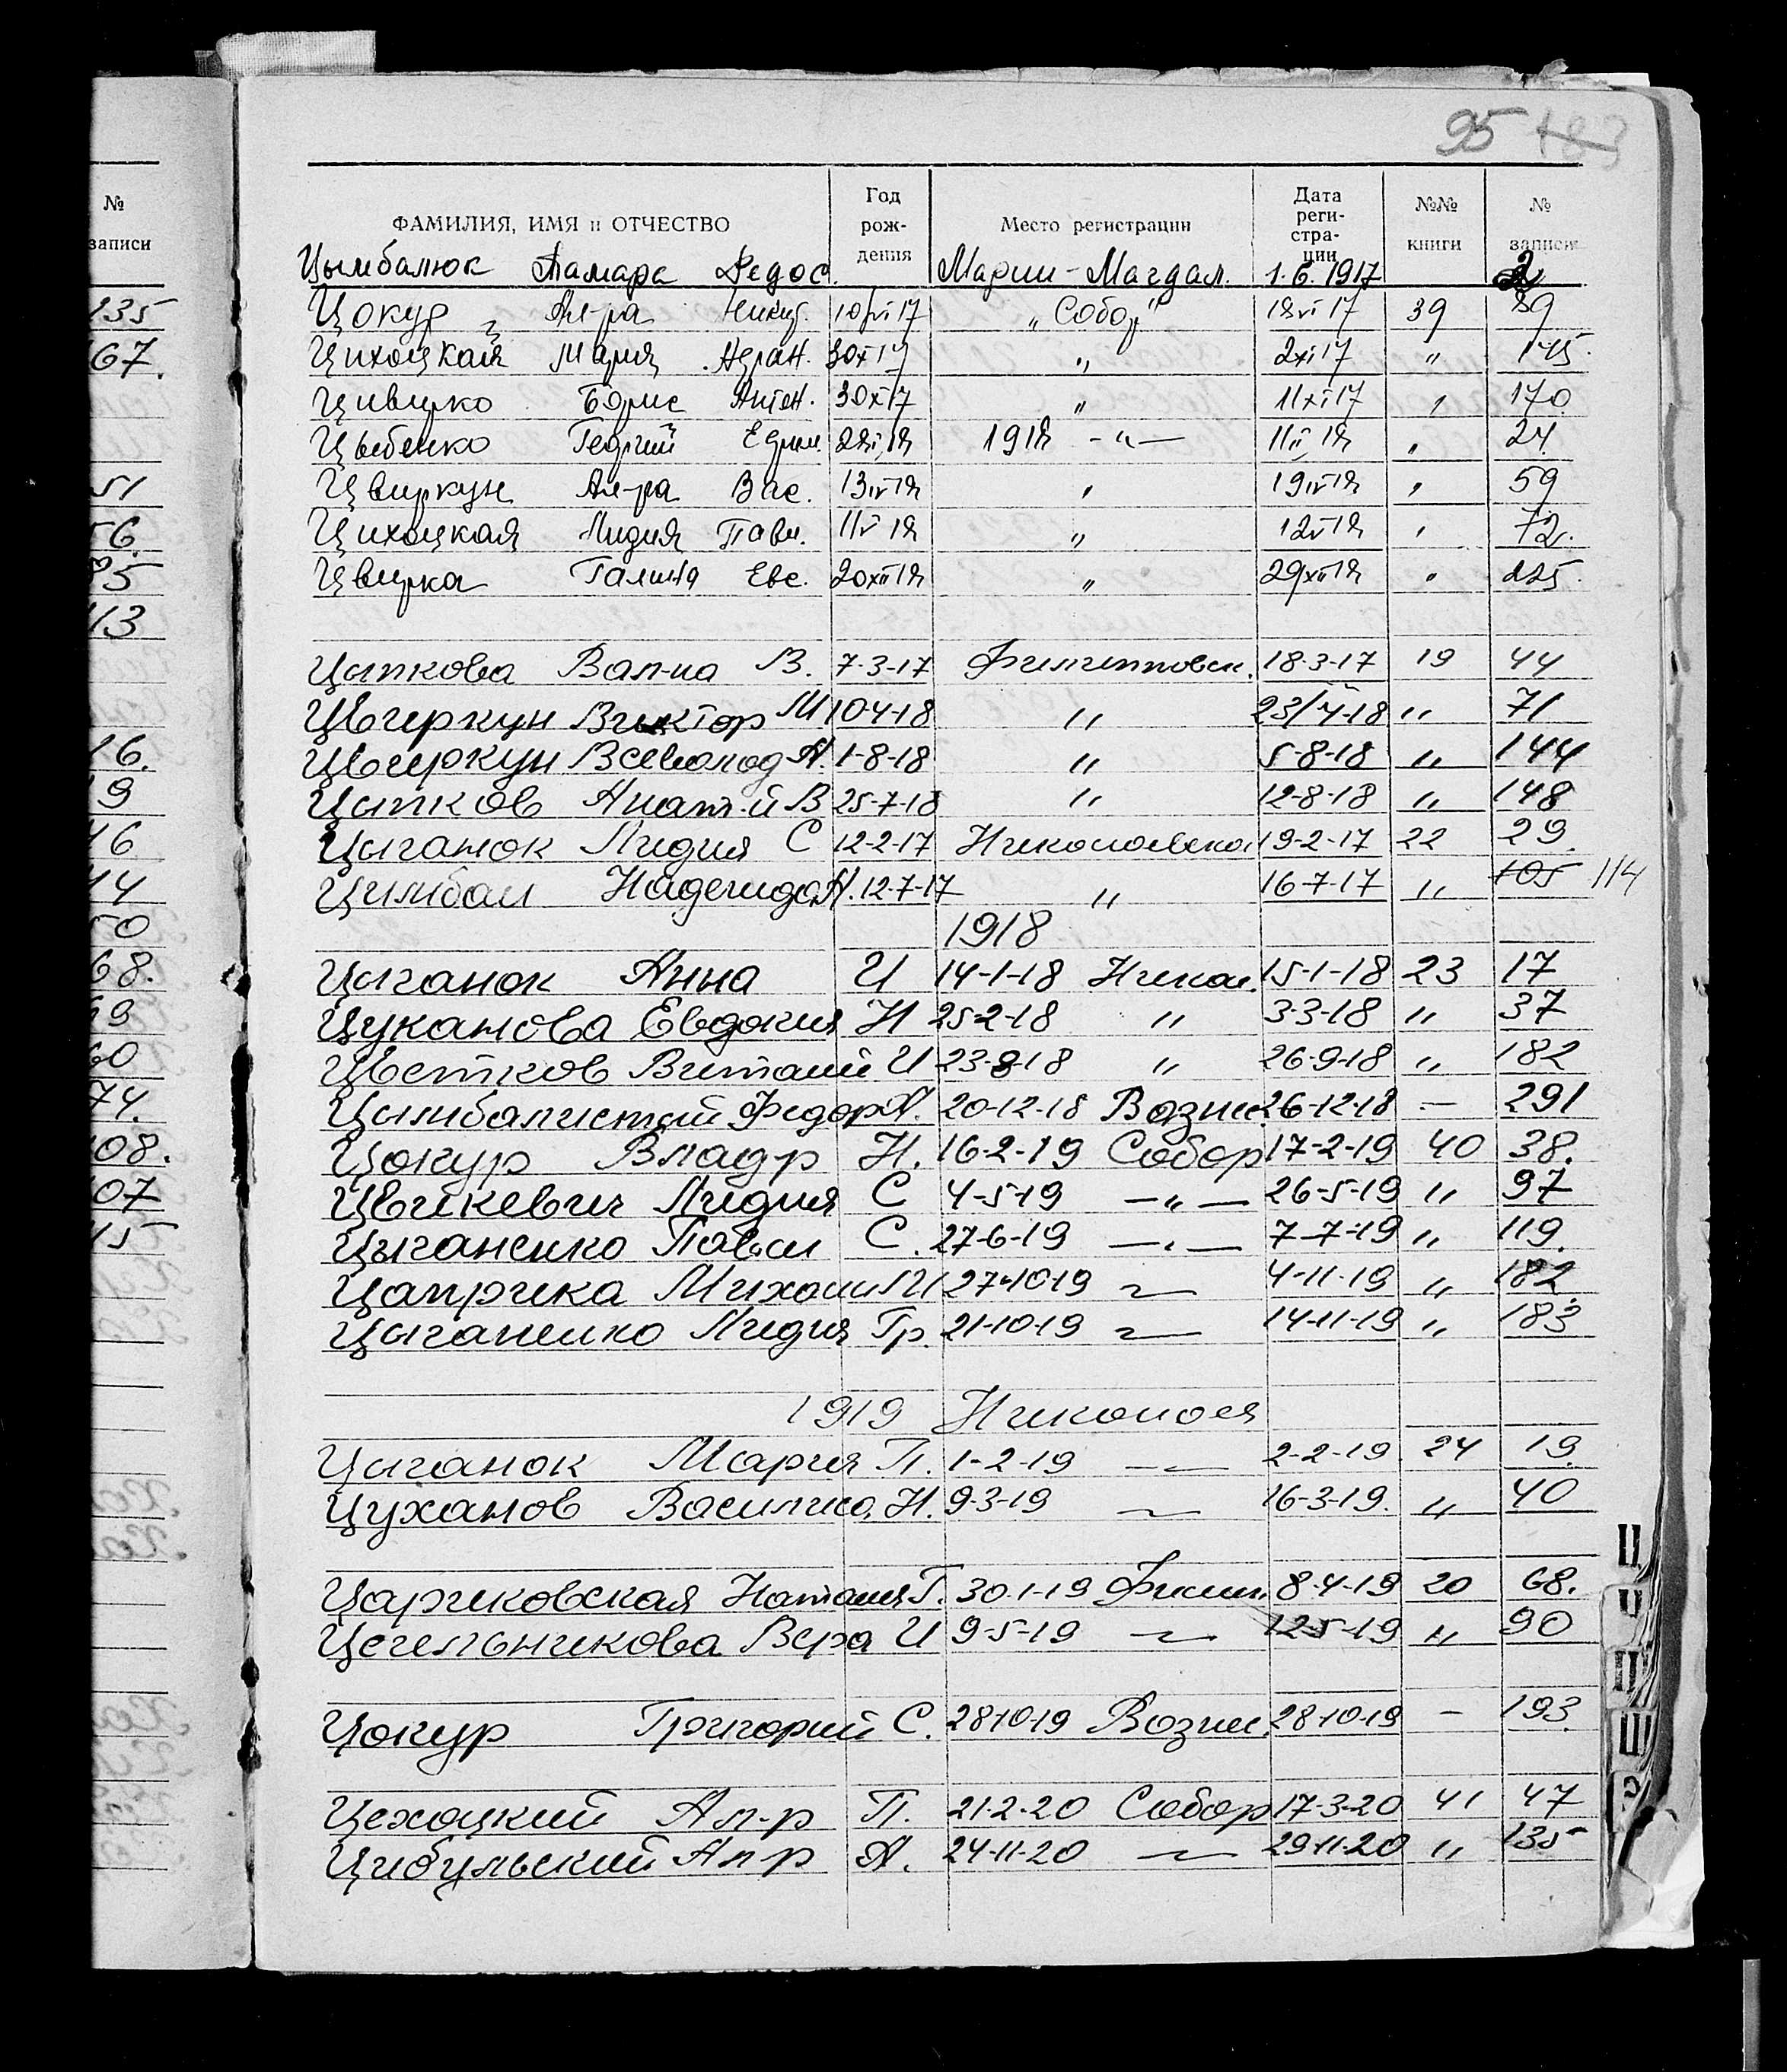 95 183
№ записи
ФАМИЛИЯ, ИМЯ и ОТЧЕСТВО Год рож- дения Место регистрации Дата реги- стра- ции №№ книги № записи
Цымбалюк Тамара Федос. Марии-Магдал. 1.6.1917 2
135 Цокур Ал-ра Никиф. 10/VI 17 „Собор" 18VI 17 39 89
67. Цихоцкая Мария 30X17 „ 2XI17 „ 175.
Цивирко Борис Антон. 30X17 „ 11XI17 „ 170
Цыбенко Георгий Ефим. 1918 -„- 11II 18 „ 24
51 Цвиркун Ал-ра Вас. 13IV18 „ 19IV18 „ 59
56. Цихоцкая Лидия Павл. 11V 18 „ 12V18 „ 72.
Цвирка Галина Евс. 20XII18 „ 29XII18 „ 225.
13
Цыпкова Вал-на В. 7-3-17 Филипповск. 18-3-17 19 44
Цвиркун Виктор М 10-4-18 „ 23/4-18 „ 71
16. Цвиркун Всеволод А. 1-8-18 „ 5-8-18 „ 144
9 Цыпков Анат-й В 25-7-18 „ 12-8-18 „ 148
16 Цыганок Лидия С 12-2-17 Николаевская 19-2-17 22 29.
14 Цимбал Надежда А. 12-7-17 „ 16-7-17 „ 105 114
50 1918
68. Цыганок Анна И 14-1-18 Никол. 15-1-18 23 17
Цуканова Евдокия Н 25-2-18 „ 3-3-18 „ 37
60 Цветков Виталий И 23-9-18 „ 26-9-18 „ 182
74. Цымбалистый Федор А. 20-12-18 Вознес. 26-12-18 — 291
108. Цокур Влад-р Н. 16-2-19 Собор 17-2-19 40 38.
07 Цвикевич Лидия С 4-5-19 -„- 26-5-19 „ 97
15 Цыганенко Павел С. 27-6-19 -„- 7-7-19 „ 119.
Цаприка Михаил И 27-10-19 ~ 4-11-19 „ 182.
Цыганенко Лидия Гр. 21-10-19 ~ 14-11-19 „ 183
1919 Николая
Цыганок Мария П. 1-2-19 ~ 2-2-19 24 19.
Цуханов Василис. Н. 9-3-19 ~ 16-3-19. „ 40
Цариковская Наталия Г. 30-1-19 Филип. 8-4-19 20 68.
Цегельникова Вера И 9-5-19 ~ 12-5-19 „ 90
Цокур Григорий С. 28-10-19 Вознес. 28-10-19 — 193.
Цехоцкий Ал-р П. 21-2-20 Собор 17-3-20 41 47
Цибульский Ал-р А. 24-11-20 ~ 29-11-20 „ 135